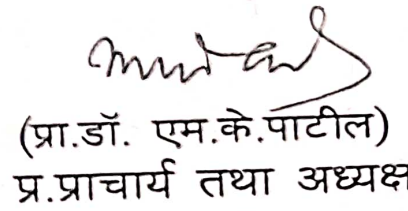 (प्रा.डॉ. एम.के.पाटील)
प्र.प्राचार्य तथा अध्यक्ष